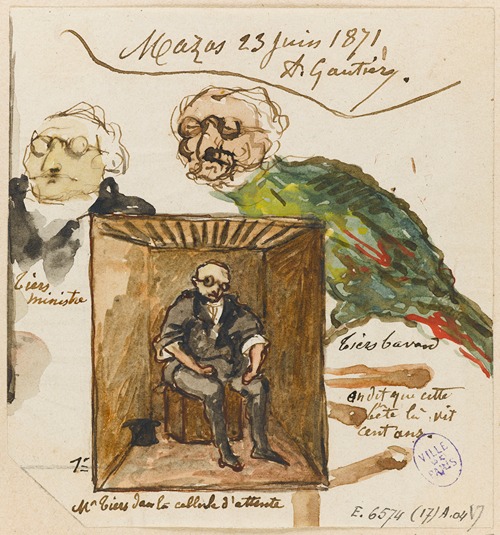 Mazas 23 Juin 1871
A. Gautier.
Tiers
ministre
Tiers bavard
on dit que cette
bête là vit
cent ans
Mr Tiers dans la cellule d'attente
VILLE
DE
PARIS
E. 6574 (17) A.04